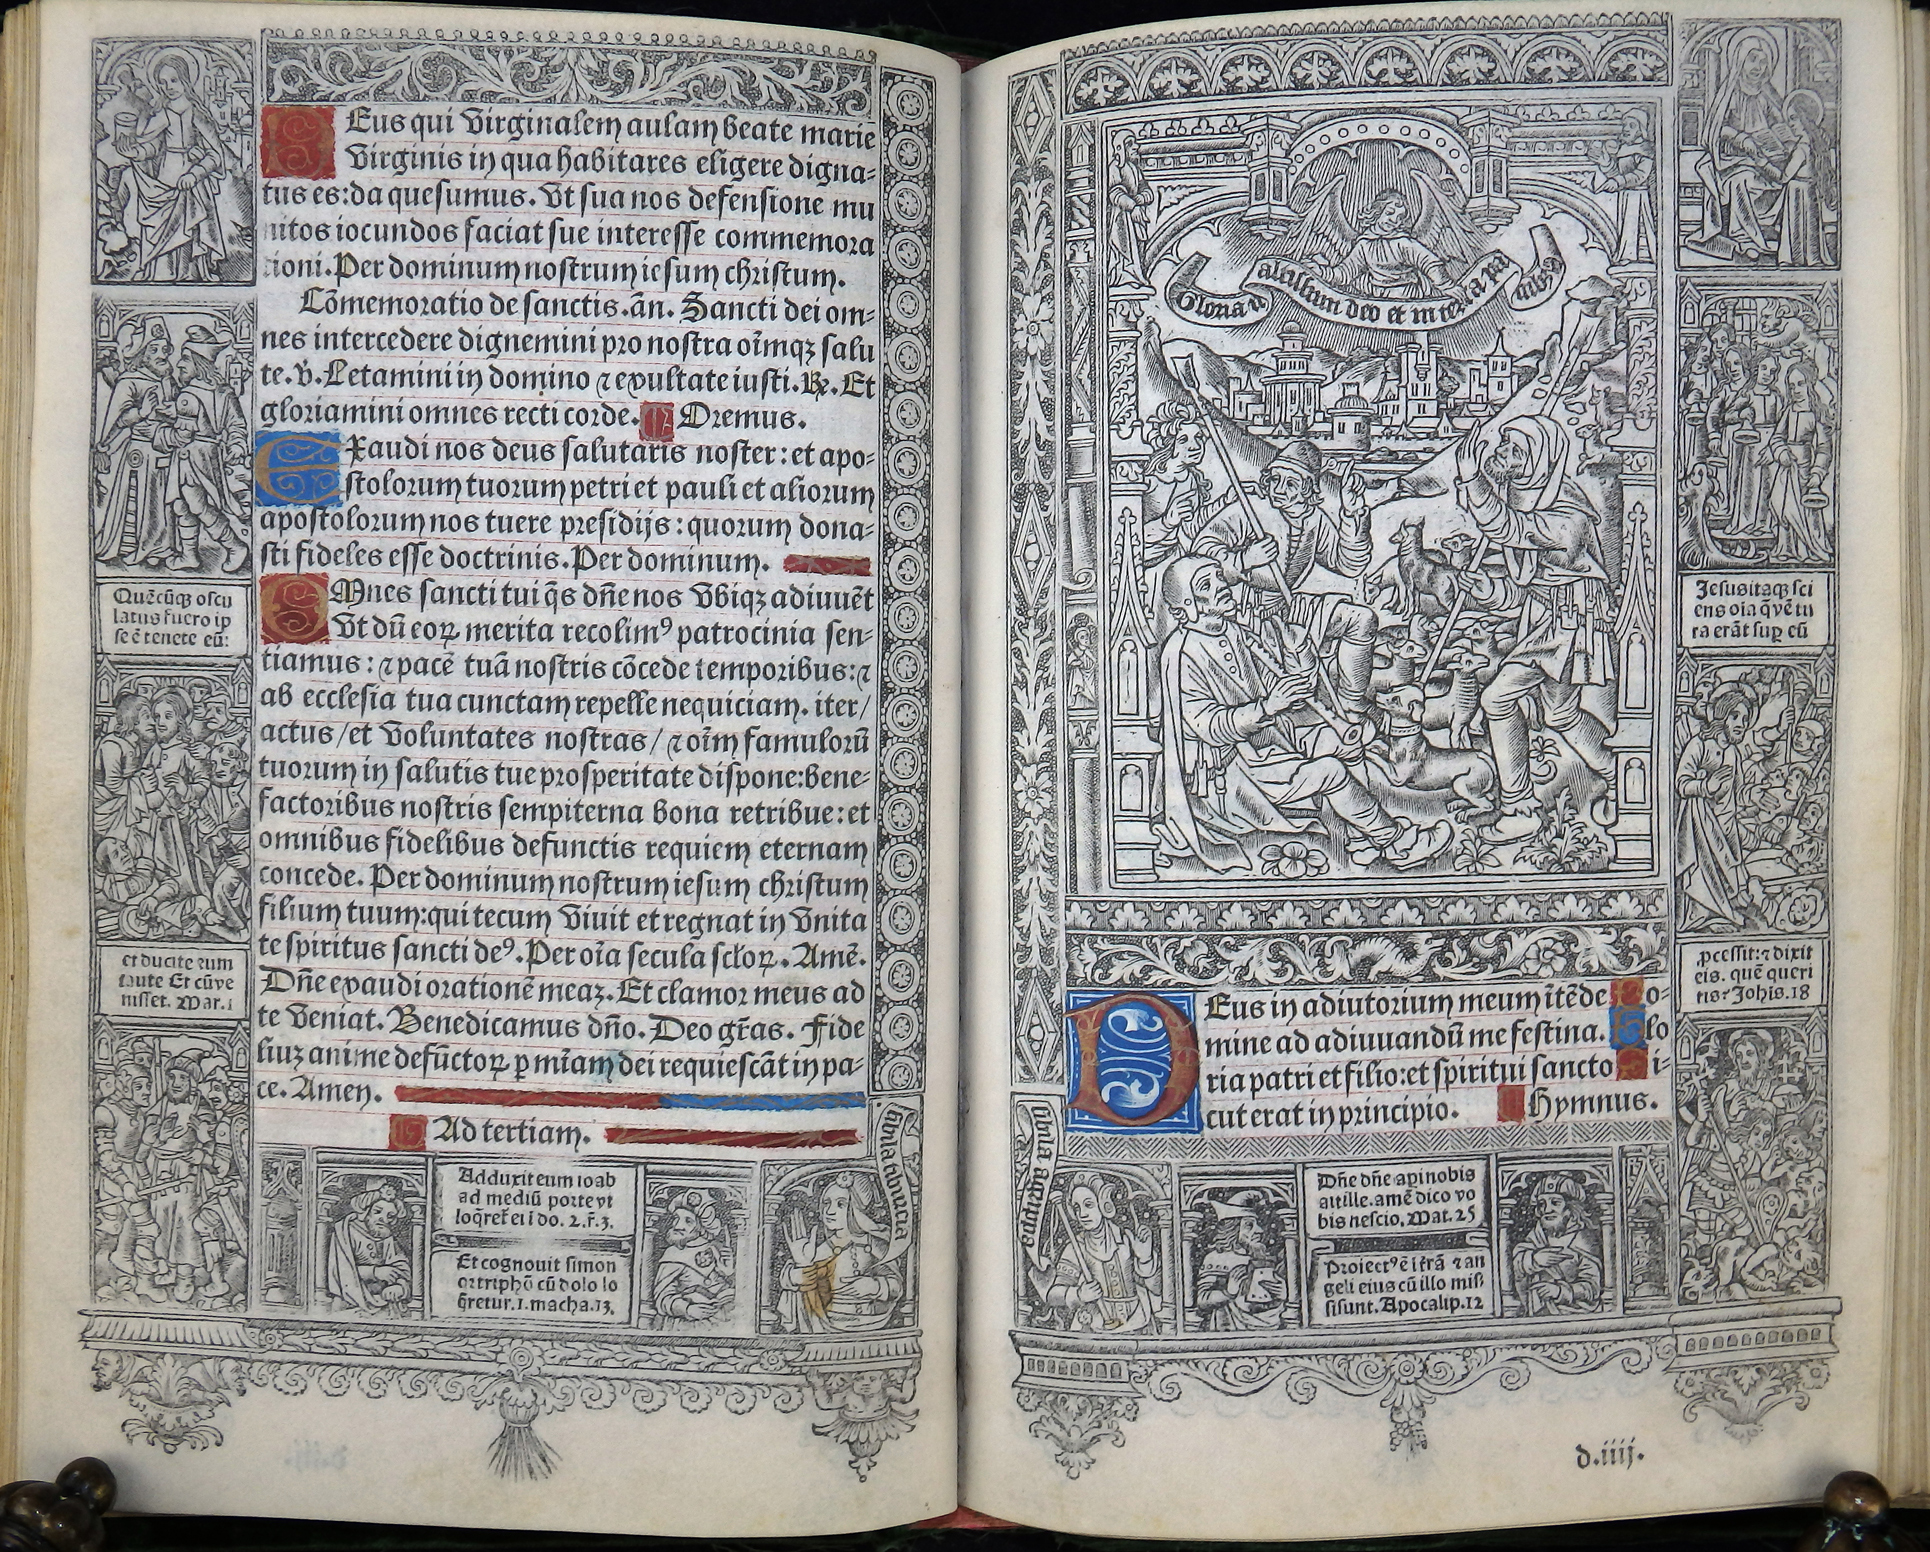 Deus qui virginalem aulam beate marie
virginis in qua habitares eligere digna-
tus es: da quesumus. vt sua nos defensione mu
nitos iocundos faciat sue interesse commemora
tioni. Per dominum nostrum iesum christum.
Cōmemoratio de sanctis. añ. Sancti dei om-
nes intercedere dignemini pro nostra oīmqꝫ salu
te. v̄. Letamini in domino ⁊ exultate iusti. ℞. Et
gloriamini omnes recti corde. Oremus.
Exaudi nos deus salutaris noster: et apo-
stolorum tuorum petri et pauli et aliorum
apostolorum nos tuere presidijs: quorum dona-
sti fideles esse doctrinis. Per dominum.
OMnes sancti tui q̄s dñe nos vbiqꝫ adiuuēt
vt dū eoꝝ merita recolimꝰ patrocinia sen-
tiamus: ⁊ pacē tuā nostris cōcede temporibus: ⁊
ab ecclesia tua cunctam repelle nequiciam. iter/
actus/ et voluntates nostras/ ⁊ oīm famulorū
tuorum in salutis tue prosperitate dispone: bene-
factoribus nostris sempiterna bona retribue: et
omnibus fidelibus defunctis requiem eternam
concede. Per dominum nostrum iesum christum
filium tuum: qui tecum viuit et regnat in vnita
te spiritus sancti deꝰ. Per oīa secula scłoꝝ. Amē.
Dñe exaudi orationē meaꝫ. Et clamor meus ad
te veniat. Benedicamus dño. Deo grās. Fide
liuꝫ anime defūctoꝝ p mīam dei requiescāt in pa-
ce. Amen.
Ad tertiam.
Quēcūqꝫ oscu
latus fuero ip
se ē tenete eū:
et ducite
caute Et cū ve
nisset. Mar. 1
Adduxit eum ioab
ad mediū porte vt
loq̄ret̄ ei ī do. 2. r̄. 3.
Et cognouit simon
qꝛ triphō cū dolo lo
q̄retur. 1. macha. 13.
sibila tiburtia
Gloria in altissimis deo et in terra pa
Deus in adiutorium meum ītēde Do-
mine ad adiuuandū me festina. Glo
ria patri et filio: et spiritui sancto Si-
cut erat in principio. Hymnus.
Jesus itaqꝫ sci
ens oīa q̄ vētu
ra erāt sup̄ eū
ꝓcessit: ⁊ dixit
eis. quē queri
tis? Johis. 18
sibila agrippa
Dñe dñe api nobis
at ille. amē dico vo
bis nescio. Mat. 25
Proiectꝰ ē ī trā ⁊ an
geli eius cū illo mis
si sunt. Apocalip. 12
d.iiij.